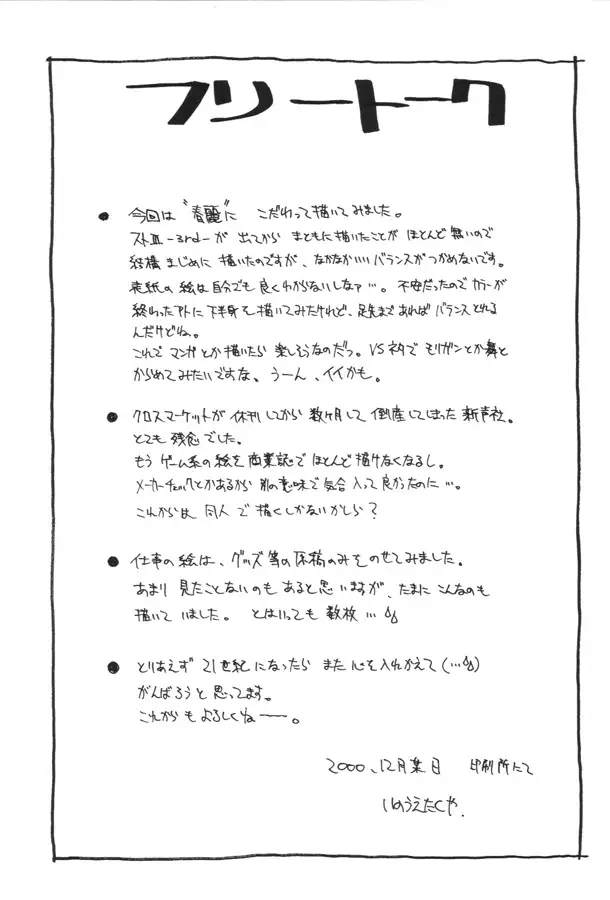 フリートーク
● 今回は "春麗"に こだわって描いてみました。
ストⅢ-3rd-が 出てから まともに描いたことが ほとんど無いので
結構まじめに 描いたのですが、なかなかいいバランスがつかめないです。
表紙の絵は自分でも良くわからないしなァ…。不安だったのでカラーが
終わったアトに下半身を描いてみたけれど、足先まであればバランスとれる
んだけどね。
これで マンガとか描いたら 楽しそうなのだっ。VSネタで モリガンとか舞と
からめてみたいですな、うーん、イイかも。
● クロスマーケットが 休刊してから 数ヶ月して 倒産してしまった 新声社。
とても 残念でした。
もう ゲーム系の絵を 商業誌で ほとんど描けなくなるし。
メーカーチェックとかあるから 別の意味で 気合 入って 良かったのに…。
これからは 同人で 描くしかないかしら?
● 仕事の絵は、グッズ等の原稿のみをのせてみました。
あまり 見たことないのも あると思いますが、たまに こんなのも
描いて いました。 とはいっても 数枚…
● とりあえず 21世紀になったら また 心を入れかえて(…)
がんばろうと 思ってます。
これからも よろしくねー。
2000、12月某日 印刷所にて
いのうえたくや.